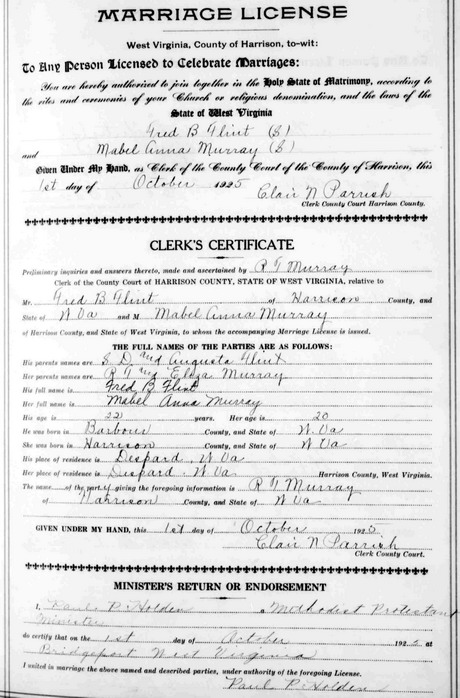 MARRIAGE LICENSE
West Virginia, County of Harrison, to-wit:
To Any Person Licensed to Celebrate Marriages:
You are hereby authorized to join together in the Holy State of Matrimony, according to
the rites and ceremonies of your Church or religious denomination, and the laws of the
State of West Virginia
Fred B Flint (S)
and Mabel Anna Murray (S)
Given Under My Hand, as Clerk of the County Court of the County of Harrison, this
1st day of October 1925
Clair N Parrish
Clerk County Court Harrison County.
CLERK'S CERTIFICATE
Preliminary inquiries and answers thereto, made and ascertained by R T Murray
Clerk of the County Court of HARRISON COUNTY, STATE OF WEST VIRGINIA, relative to
Mr. Fred B Flint of Harrison County, and
State of W Va and M Mabel Anna Murray
of Harrison County, and State of West Virginia, to whom the accompanying Marriage License is issued.
THE FULL NAMES OF THE PARTIES ARE AS FOLLOWS:
His parents names are S D and Augusta Flint
Her parents names are R T and Eliza Murray
His full name is Fred B Flint
Her full name is Mabel Anna Murray
His age is 22 years. Her age is 20
He was born in Barbour County, and State of W. Va
She was born in Harrison County, and State of W Va
His place of residence is Despard, W. Va
Her place of residence is Despard W Va Harrison County, West Virginia.
The name of the party giving the foregoing information is R T Murray
of Harrison County, and State of W Va
GIVEN UNDER MY HAND, this 1st day of October 1925
Clair N Parrish
Clerk County Court.
MINISTER'S RETURN OR ENDORSEMENT
I, Paul P. Holden a Methodist Protestant
Minister
do certify that on the 1st day of October 1925 at
Bridgeport West Virginia
I united in marriage the above named and described parties, under authority of the foregoing License.
Paul P. Holden